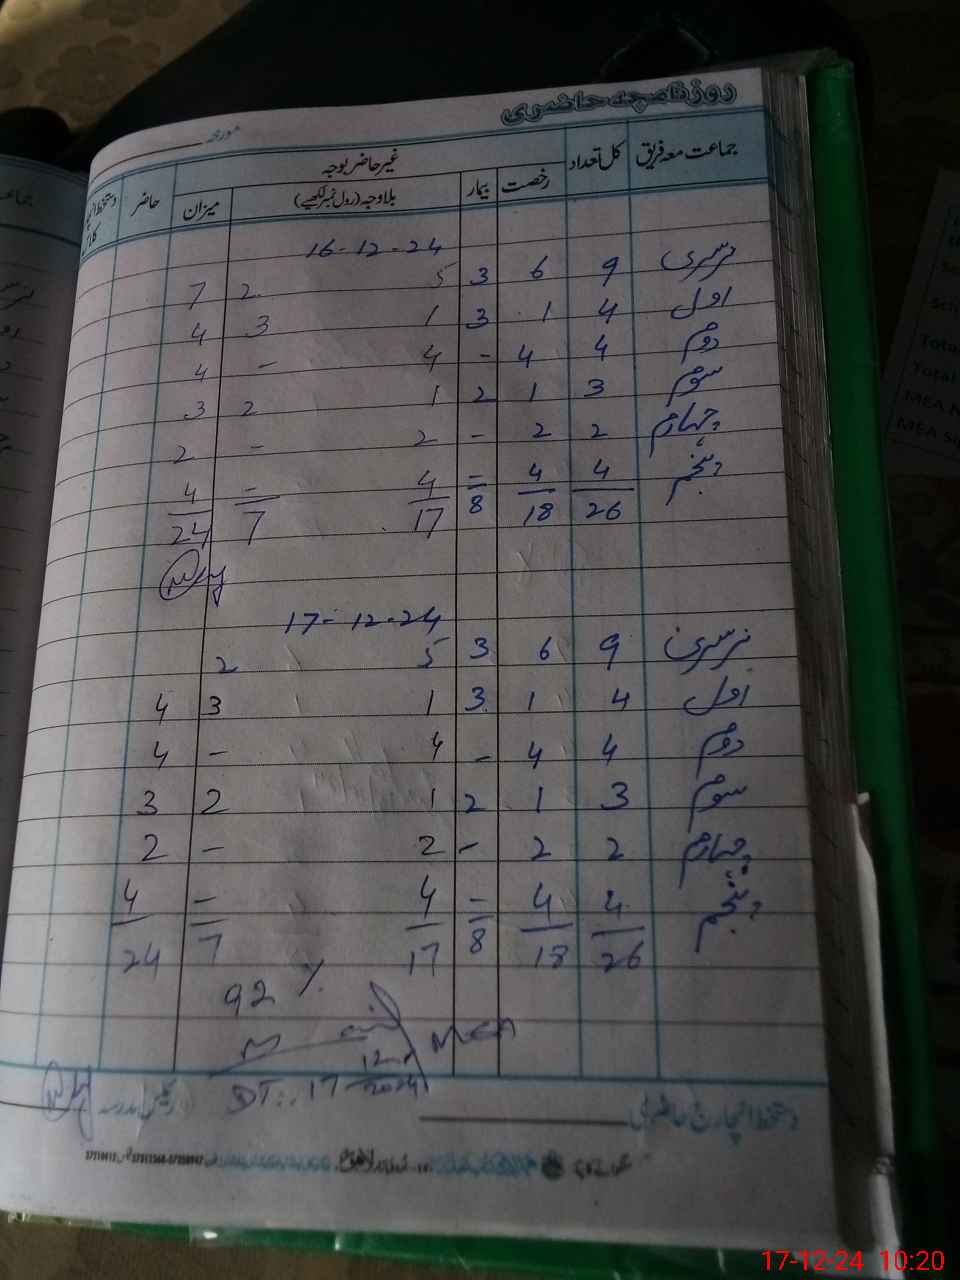 روزنامچہ حاضری
مورخہ
جماعت معہ فریق کل تعداد غیر حاضر بوجہ حاضر
رخصت بیمار بلاوجہ (رول نمبر لکھیے) میزان
16-12-24
نرسری 9 6 3 5 2 7
اول 4 1 3 1 3 4
دوم 4 4 - 4 - 4
سوم 3 1 2 1 2 3
چہارم 2 2 - 2 - 2
پنجم 4 4 - 4 - 4
26 18 8 17 7 24
17-12-24
نرسری 9 6 3 5 2
اول 4 1 3 1 3 4
دوم 4 4 - 4 - 4
سوم 3 1 2 1 2 3
چہارم 2 2 - 2 - 2
پنجم 4 4 - 4 - 4
26 18 8 17 7 24
92 %
MEA
DT:. 17 12 2024
دستخط انچارج حاضری
Total
Total
MEA
17-12-24 10:20